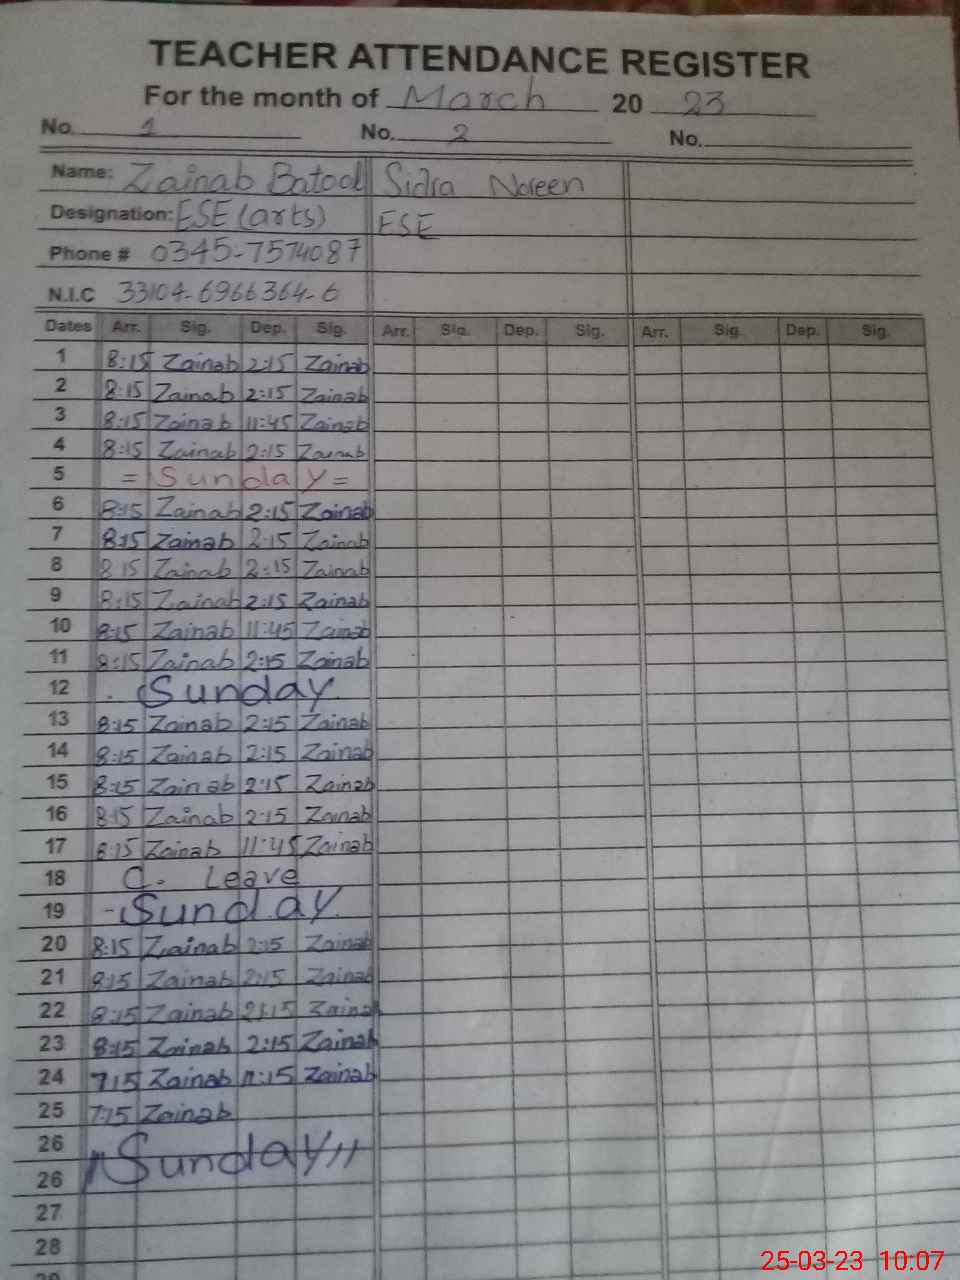 TEACHER ATTENDANCE REGISTER
For the month of March 20 23
No. 1 No. 2 No.
Name: Zainab Batool Sidra Noreen
Designation: ESE (arts) ESE
Phone # 0345-7574087
N.I.C 33104-6966364-6
Dates Arr. Sig. Dep. Sig. Arr. Sig. Dep. Sig. Arr. Sig. Dep. Sig.
1 8:15 Zainab 2:15 Zainab
2 8:15 Zainab 2:15 Zainab
3 8:15 Zainab 11:45 Zainab
4 8:15 Zainab 2:15 Zainab
5 = Sunday =
6 8:15 Zainab 2:15 Zainab
7 8:15 Zainab 2:15 Zainab
8 8:15 Zainab 2:15 Zainab
9 8:15 Zainab 2:15 Zainab
10 8:15 Zainab 11:45 Zainab
11 8:15 Zainab 2:15 Zainab
12 Sunday
13 8:15 Zainab 2:15 Zainab
14 8:15 Zainab 2:15 Zainab
15 8:15 Zainab 2:15 Zainab
16 8:15 Zainab 2:15 Zainab
17 8:15 Zainab 11:45 Zainab
18 C. Leave
19 -Sunday
20 8:15 Zainab 2:15 Zainab
21 8:15 Zainab 2:15 Zainab
22 8:15 Zainab 2:15 Zainab
23 8:15 Zainab 2:15 Zainab
24 7:15 Zainab 11:15 Zainab
25 7:15 Zainab
26 Sunday
26
27
28
25-03-23 10:07